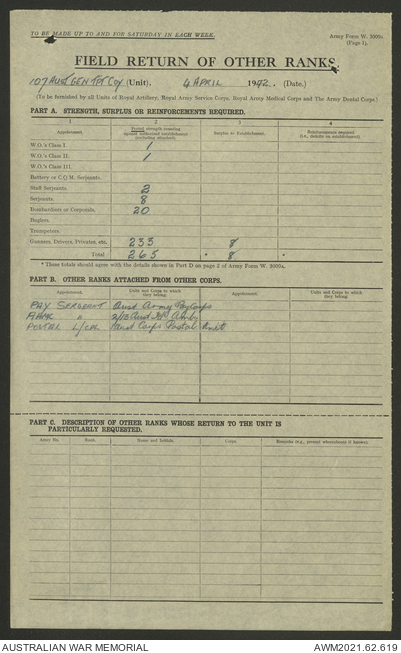 TO BE MADE UP TO AND FOR SATURDAY IN EACH WEEK.
Army Form W. 3009a.
(Page 1).
FIELD RETURN OF OTHER RANKS.
107 Aust GEN TPT Coy (Unit). 4 APRIL 1942. (Date.)
(To be furnished by all Units of Royal Artillery, Royal Army Service Corps, Royal Army Medical Corps and The Army Dental Corps.)
PART A. STRENGTH, SURPLUS OR REINFORCEMENTS REQUIRED.
1 2 3 4
Appointment. Posted strength counting against authorised establishment (excluding attached). Surplus to Establishment. Reinforcements required
W.O.'s Class I. 1
W.O.'s Class II. 1
W.O.'s Class III.
Battery or C.Q.M. Serjeants.
Staff Serjeants. 2
Serjeants. 8
Bombardiers or Corporals. 20
Buglers.
Trumpeters.
Gunners, Drivers, Privates, etc. 233 8
Total 265 * 8 *
* These totals should agree with the details shown in Part D on page 2 of Army Form W. 3009a.
PART B. OTHER RANKS ATTACHED FROM OTHER CORPS.
Appointment. Units and Corps to which they belong. Appointment. Units and Corps to which they belong.
PAY SERGEANT Aust Army Pay Corps
" 2/13 Aust
POSTAL L/CPL Aust Corps Postal Unit
PART C. DESCRIPTION OF OTHER RANKS WHOSE RETURN TO THE UNIT IS
PARTICULARLY REQUESTED.
Army No. Rank. Name and Initials. Corps. Remarks (e.g., present whereabouts if known).
AUSTRALIAN WAR MEMORIAL AWM2021.62.619